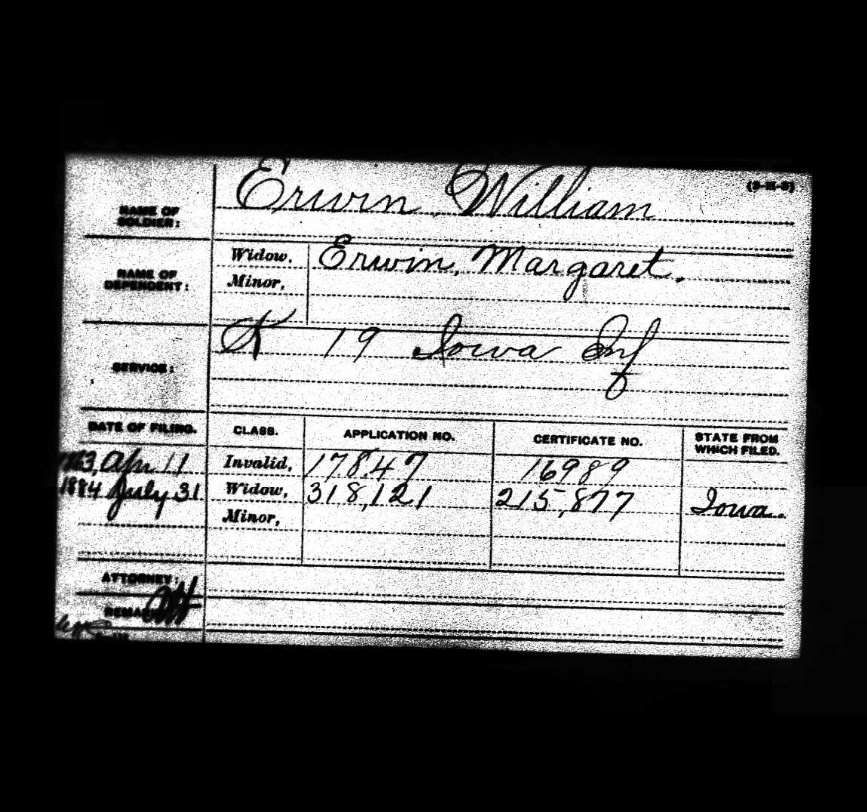 (3-M-5)
NAME OF SOLDIER: Erwin, William
NAME OF DEPENDENT: Widow, Erwin, Margaret.
Minor,
SERVICE: K 19 Iowa Inf
DATE OF FILING. CLASS. APPLICATION NO. CERTIFICATE NO. STATE FROM WHICH FILED.
1863, Apr 11 Invalid, 17847 16989
1884 July 31 Widow, 318,121 215,877 Iowa.
Minor,
ATTORNEY: